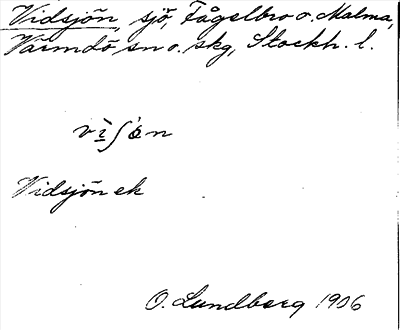 Vidsjön, sjö, Fågelbro o. Malma,
Värmdö sn o. skg, Stockh. l.
vìʃòn
Vidsjön ek
O. Lundberg 1906